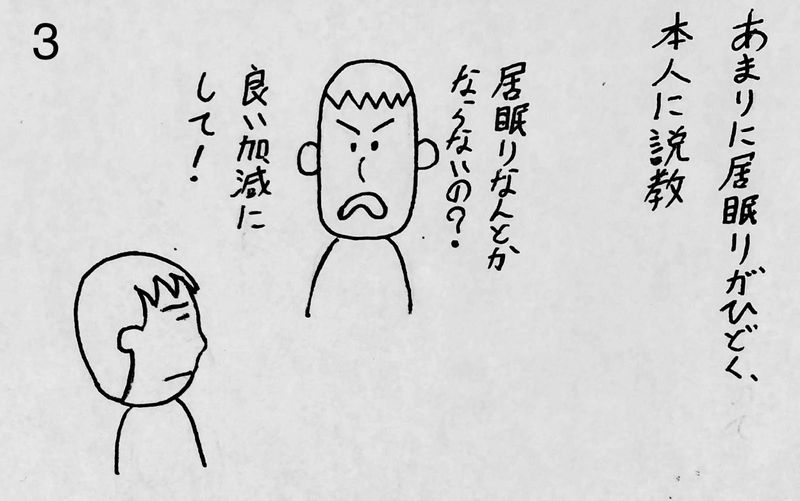 3
あまりに居眠りがひどく、
本人に説教
居眠りなんとか
ならないの？
良い加減に
して！